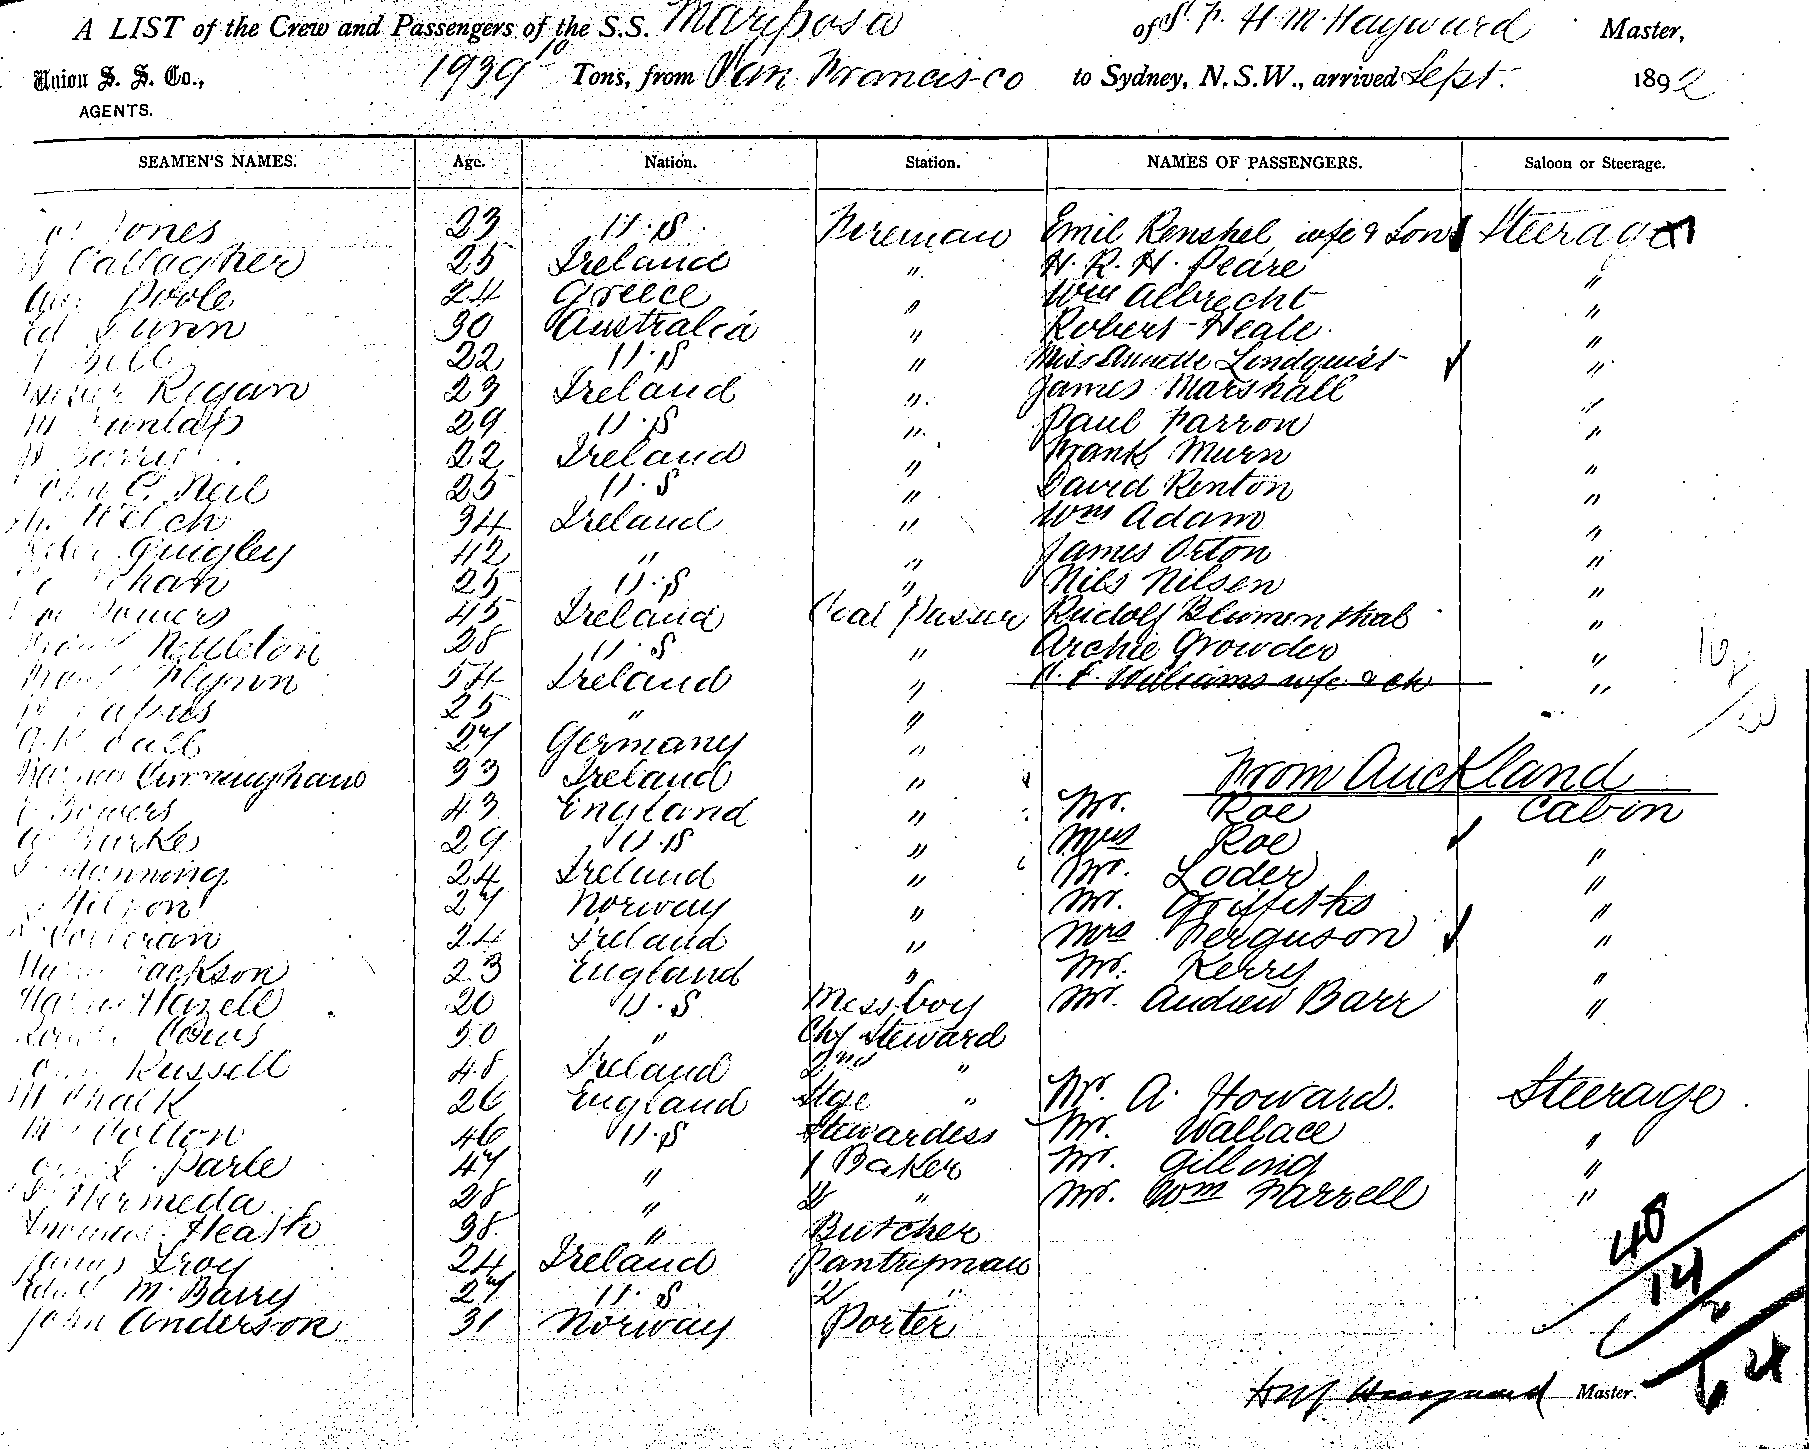 A LIST of the Crew and Passengers of the S.S. Mariposa of S. F. H. M. Hayward Master,
Union S. S. Co., 1939 Tons, from San Francisco to Sydney, N.S.W., arrived Sept. 1892
AGENTS.
SEAMEN'S NAMES. Age. Nation. Station. NAMES OF PASSENGERS. Saloon or Steerage.
Jones 23 U.S Fireman Emil Renshel wife & Son Steerage
Gallagher 25 Ireland " H. R. H. Peare "
Poole 24 Greece " Wm Albrecht "
30 Australia " Robert Heale "
Bell 22 U.S " Miss Annette Lindquist "
Regan 23 Ireland " James Marshall "
Dunlap 29 U.S " Paul Farron "
Barry 22 Ireland " Frank Murn "
John O. Neil 25 U.S " David Renton "
Welch 34 Ireland " Wm Adam "
Peter Quigley 42 " " James Orton "
25 U.S " Nils Nilsen "
Powers 45 Ireland Coal Passer Rudolf Blumenthal "
Frank Nettleton 28 U.S " Archie Growder "
Frank Flynn 54 Ireland " Williams wife & ch "
25 " "
27 Germany "
Cunningham 33 Ireland " From Auckland
Bowers 43 England " Mr. Roe Cabin
Burke 29 U.S " Mrs Roe "
Manning 24 Ireland " Mr. Loder "
27 Norway " Mr. Griffiths "
24 Ireland " Mrs Ferguson "
Jackson 23 England " Mr. Kerry "
Harry Hazell 20 U.S Messboy Mr. Andrew Barr "
50 " Chf Steward
Russell 48 Ireland 2nd "
Chalk 26 England Stge " Mr. A. Howard. Steerage
46 U.S Stewardess Mr. Wallace "
Parle 47 " 1 Baker Mr. Gilling "
Hermeda 28 " 2 " Mr. Wm Farrell "
Thomas Heath 38 " Butcher
James Troy 24 Ireland Pantryman
M. Barry 27 U.S 2 "
John Anderson 31 Norway Porter
48
14
2
64
Hayward Master.